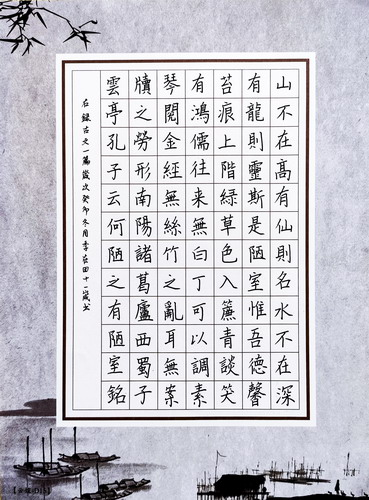 山不在高有仙則名水不在深
有龍則靈斯是陋室惟吾德馨
苔痕上階緑草色入簾青談笑
有鴻儒往来無白丁可以調素
琴閲金經無絲竹之亂耳無案
牘之勞形南陽諸葛廬西蜀子
雲亭孔子云何陋之有陋室銘
右錄古文一篇歲次癸卯冬月李在田十一歲书